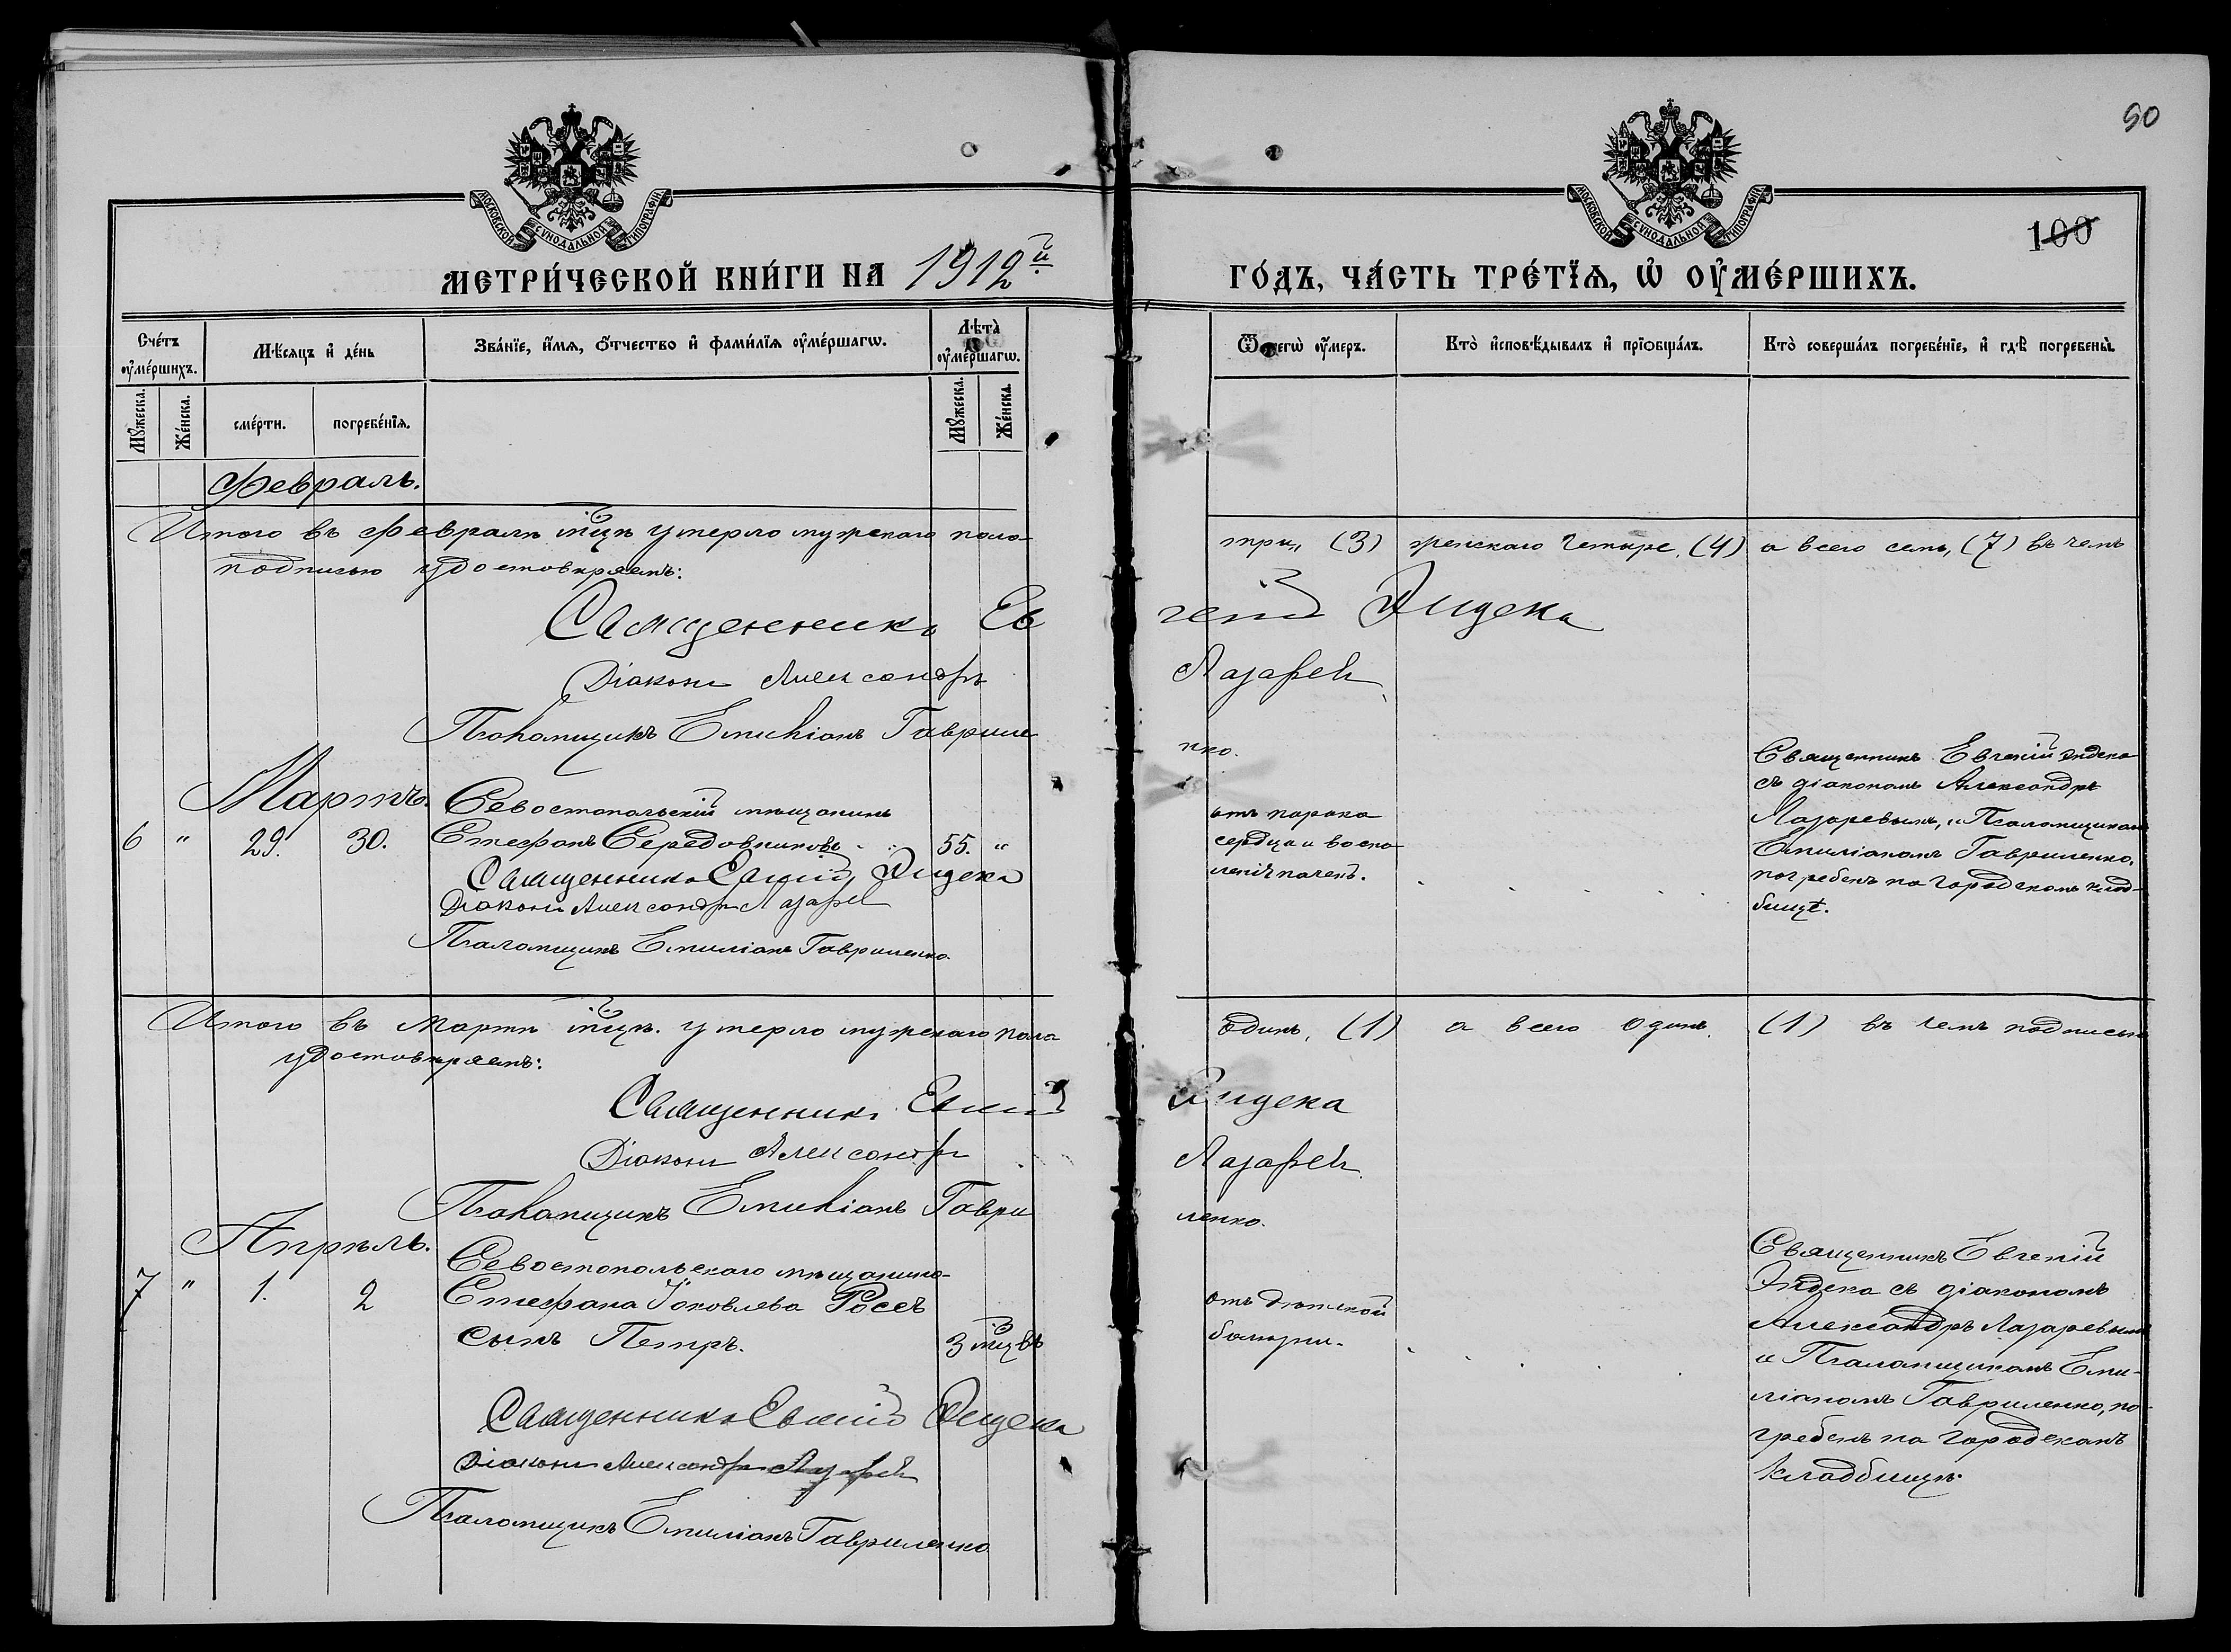 90
МОСКОВСКОЙ СѴНОДАЛЬНОЙ ТИПОГРАФІИ
МОСКОВСКОЙ СѴНОДАЛЬНОЙ ТИПОГРАФІИ
100
МЕТРИ́ЧЕСКОЙ КНИ́ГИ НА 1912й
ГО́ДЪ, ЧА́СТЬ ТРЕ́ТЇѦ, Ѡ҆ ОУ҆МЕ́РШИХЪ.
Сче́тъ оу҆ме́ршихъ.
Мѣ́сѧцъ и҆ де́нь
Зва́нїе, и҆́мѧ, ѻ҆́тчество и҆ фами́лїѧ оу҆ме́ршагѡ.
Лѣ́та оу҆ме́ршагѡ.
Ѿ чегѡ̀ оу҆́меръ.
Кто̀ и҆сповѣ́дывалъ и҆ прїѡбща́лъ.
Кто̀ соверша́лъ погребе́нїе, и҆ гдѣ̀ погребены̀.
Мꙋ́жеска.
Же́нска.
сме́рти.
погребе́нїѧ.
Мꙋ́жеска.
Же́нска.
Февраль.
Итого въ Февралѣ м̃цѣ умерло мужскаго пола три, (3) женскаго четыре, (4) а всего семь, (7) въ чемъ
подписью удостовѣряемъ:
Священникъ Евгеній Эндека
Діаконъ Александръ Лазаревъ
Псаломщикъ Емиліанъ Гавриленко.
Мартъ.
6 " 29. 30.
Севостопольскій мѣщанинъ
Стефанъ Середовниковъ
55. "
отъ порока
сердца и воспа-
ленія почекъ.
Священникъ Евгеній Эндека
съ діакономъ Александръ
Лазаревымъ, и Псаломщикомъ
Емиліаномъ Гавриленко.
погребенъ на городскомъ клад-
бищѣ.
Священникъ Евгеній Эндека
Діаконъ Александръ Лазаревъ
Псаломщикъ Емиліанъ Гавриленко.
Итого въ Мартѣ м̃цѣ. умерло мужскаго пола одинъ, (1) а всего одинъ. (1) въ чемъ подписью
удостовѣряемъ:
Священникъ Евгеній Эндека
Діаконъ Александръ Лазаревъ
Псаломщикъ Емиліанъ Гавриленко.
Апрѣль.
7 " 1. 2
Севостопольскаго мѣщанина
Стефана Іаковлева Россъ
сынъ Петръ.
3 м̃цвъ
отъ дѣтской
болѣзни.
Священникъ Евгеній
Эндека съ діакономъ
Александръ Лазаревымъ
и Псаломщикомъ Еми-
ліаномъ Гавриленко, по-
гребенъ на городскомъ
кладбищѣ.
Священникъ Евгеній Эндека
Діаконъ Александръ Лазаревъ
Псаломщикъ Емиліанъ Гавриленко